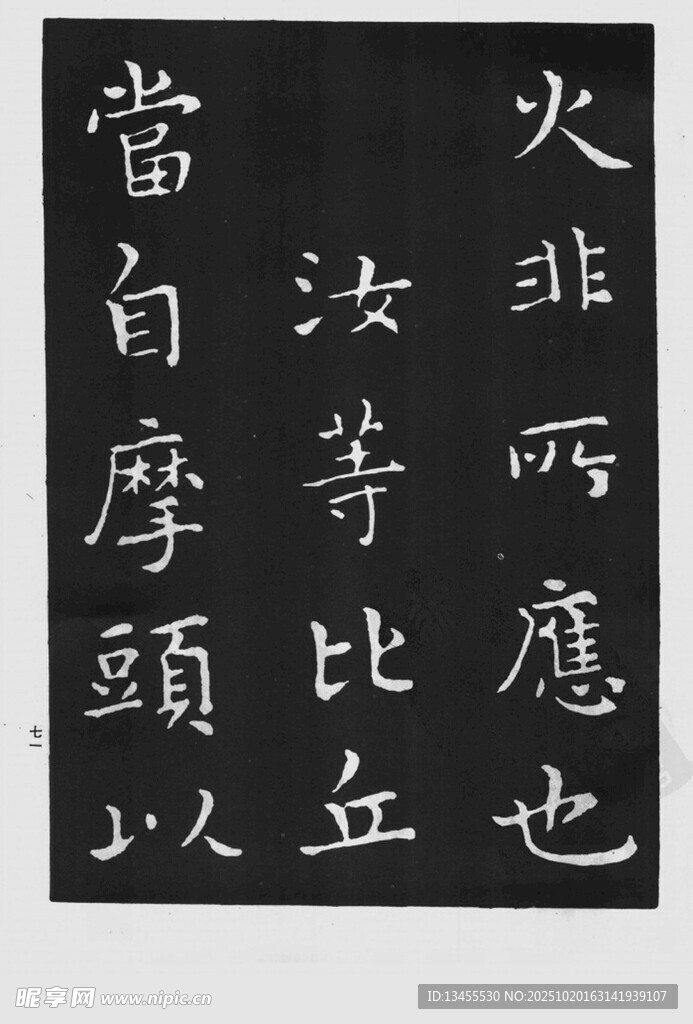 火非所應也
汝等比丘
當自摩頭以
七一
昵享网 www.nipic.cn
ID:13455530 NO:20251020163141939107